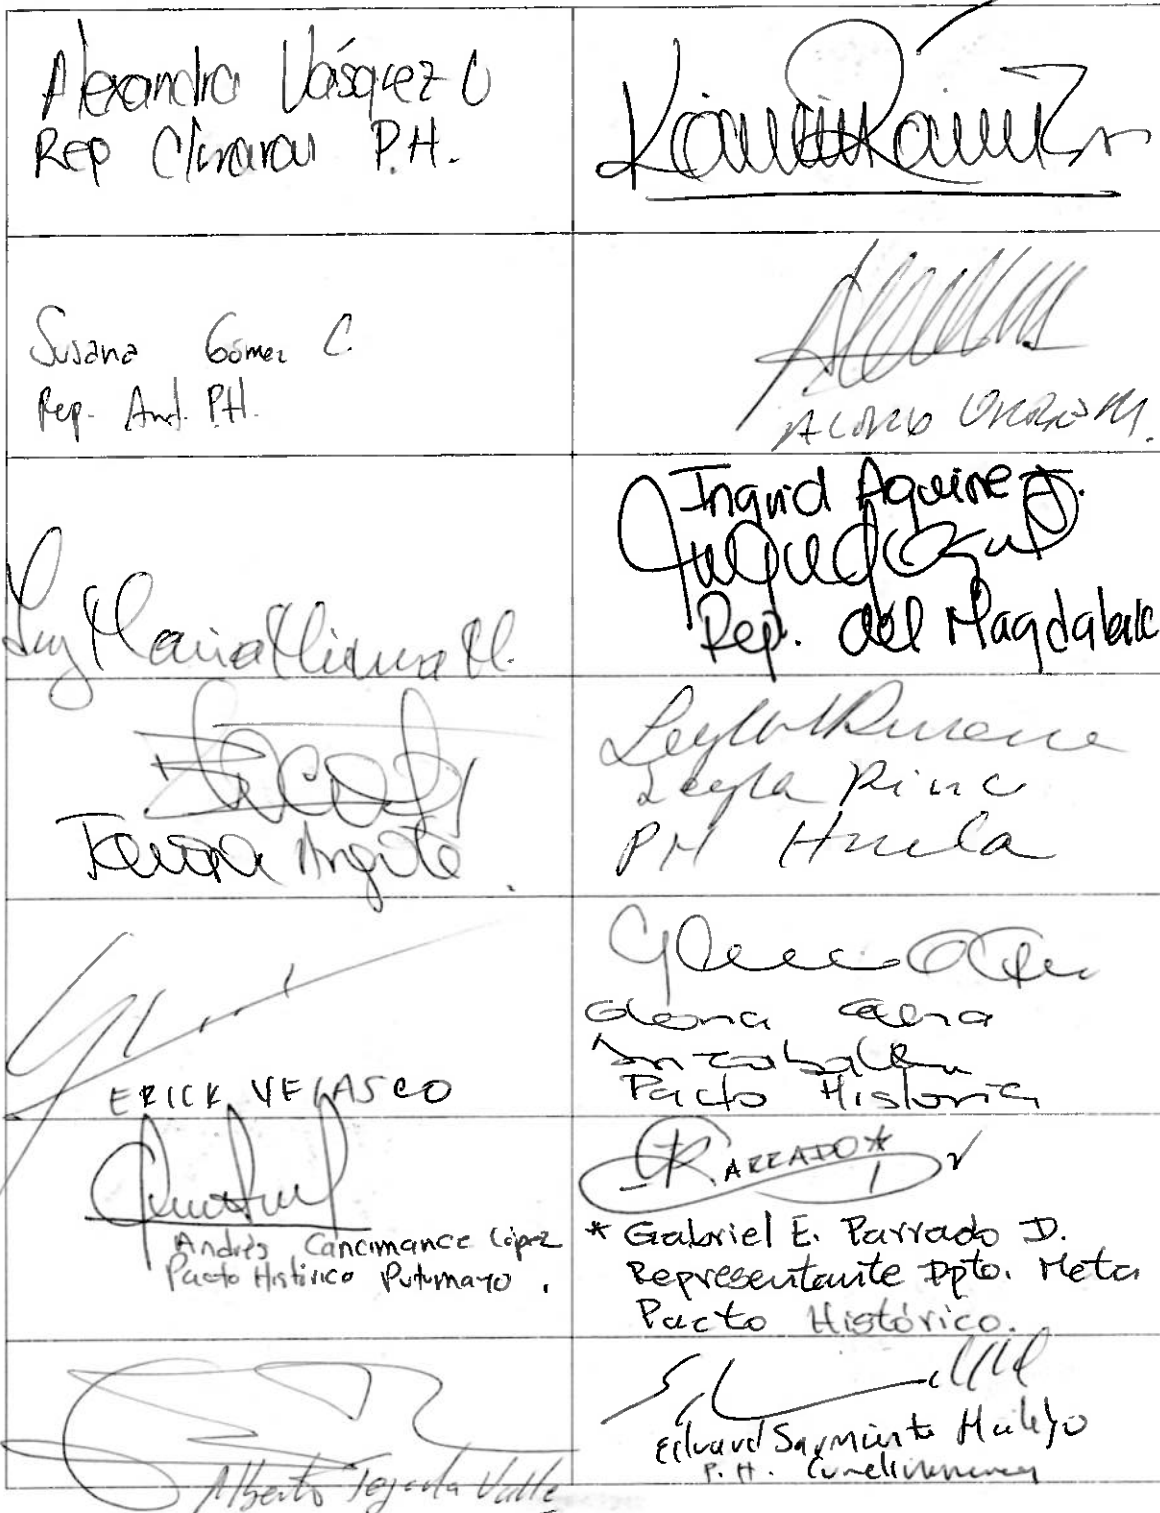 Alexandra Vásquez O
Rep Cámara P.H.
Susana Gómez C.
Rep. Ant. P.H.
Luz María Múnera M.
Ingrid Aguirre J.
Rep. del Magdalena
Leyla Rinc
PH Huila
ERICK VELASCO
Gloria Elena
Arizabaleta
Pacto Historic
Andrés Cancimance López
Pacto Histórico Putumayo.
PARRADO*
* Gabriel E. Parrado D.
Representante Dpto. Meta
Pacto Histórico.
Alberto Tejada Valle
Eduard Sarmiento Hidalgo
P.H. Cundinamarca